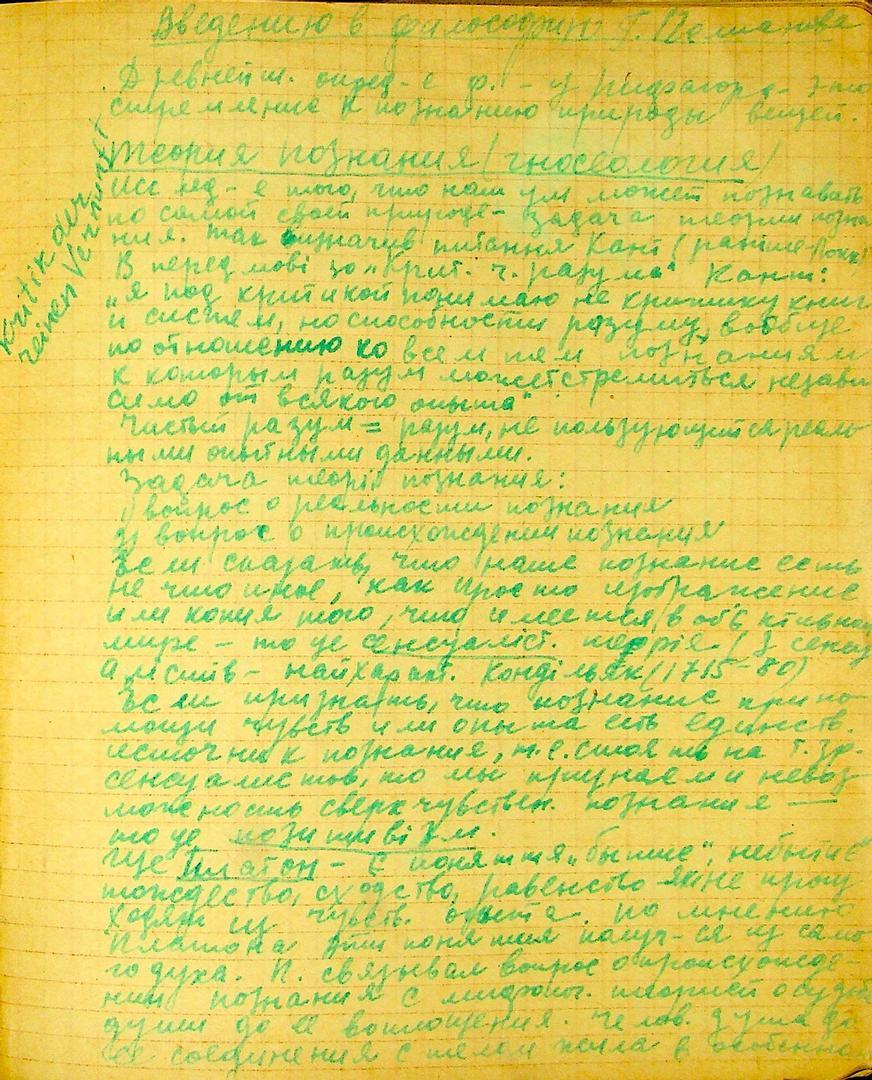 Введению в философию Г.
Древнейш. опред-е ф. - у Пифагора - это
стремление к познанию природы вещей.
Теория познания (гносеология)
Исслед-е того, что наш ум может познавать
по самой своей природе - задача теории позна
ния. Так визначив питання Кант (раніше Локк)
В передмові до „Крит. ч. разума" Кант:
„я под критикой понимаю не критику книг
и систем, но способности разуму вообще
по отношению ко всем тем познаниям
к которым разум может стремиться незави
симо от всякого опыта"
Kritik der
reinen Vernunft
Чистый разум = разум, не пользующийся реаль
ными опытными данными.
Задача теорії познания:
1) вопрос о реальности познания
2) вопрос о происхождении познания
Если сказать, что наше познание есть
не что иное, как просто изображение
или копия того, что имеется в об'єктивном
мире - то це сенсуаліст. теорія. (У сенсу
алістів - найхаракт. Кондільяк (1715-80)
Если признать, что познание при по
мощи чувств или опыта есть единств.
источник познания, т.е. стоять на т. зр.
сенсуалистов, то мы признаем и невоз
можность сверхчувствен. познания —
то це позитивізм.
Ще Платон - є поняття „бытие", небытие
тождество, сходство, равенство які не проис
ходят из чувств. опыта. по мнению
Платона эти понятия получ-ся из само
го духа. П. связывал вопрос о происхожде
нии познания с мифолог. теорией о судьбе
души до ее воплощения. Челов. душа до
ее соединения с телом жила в особенном